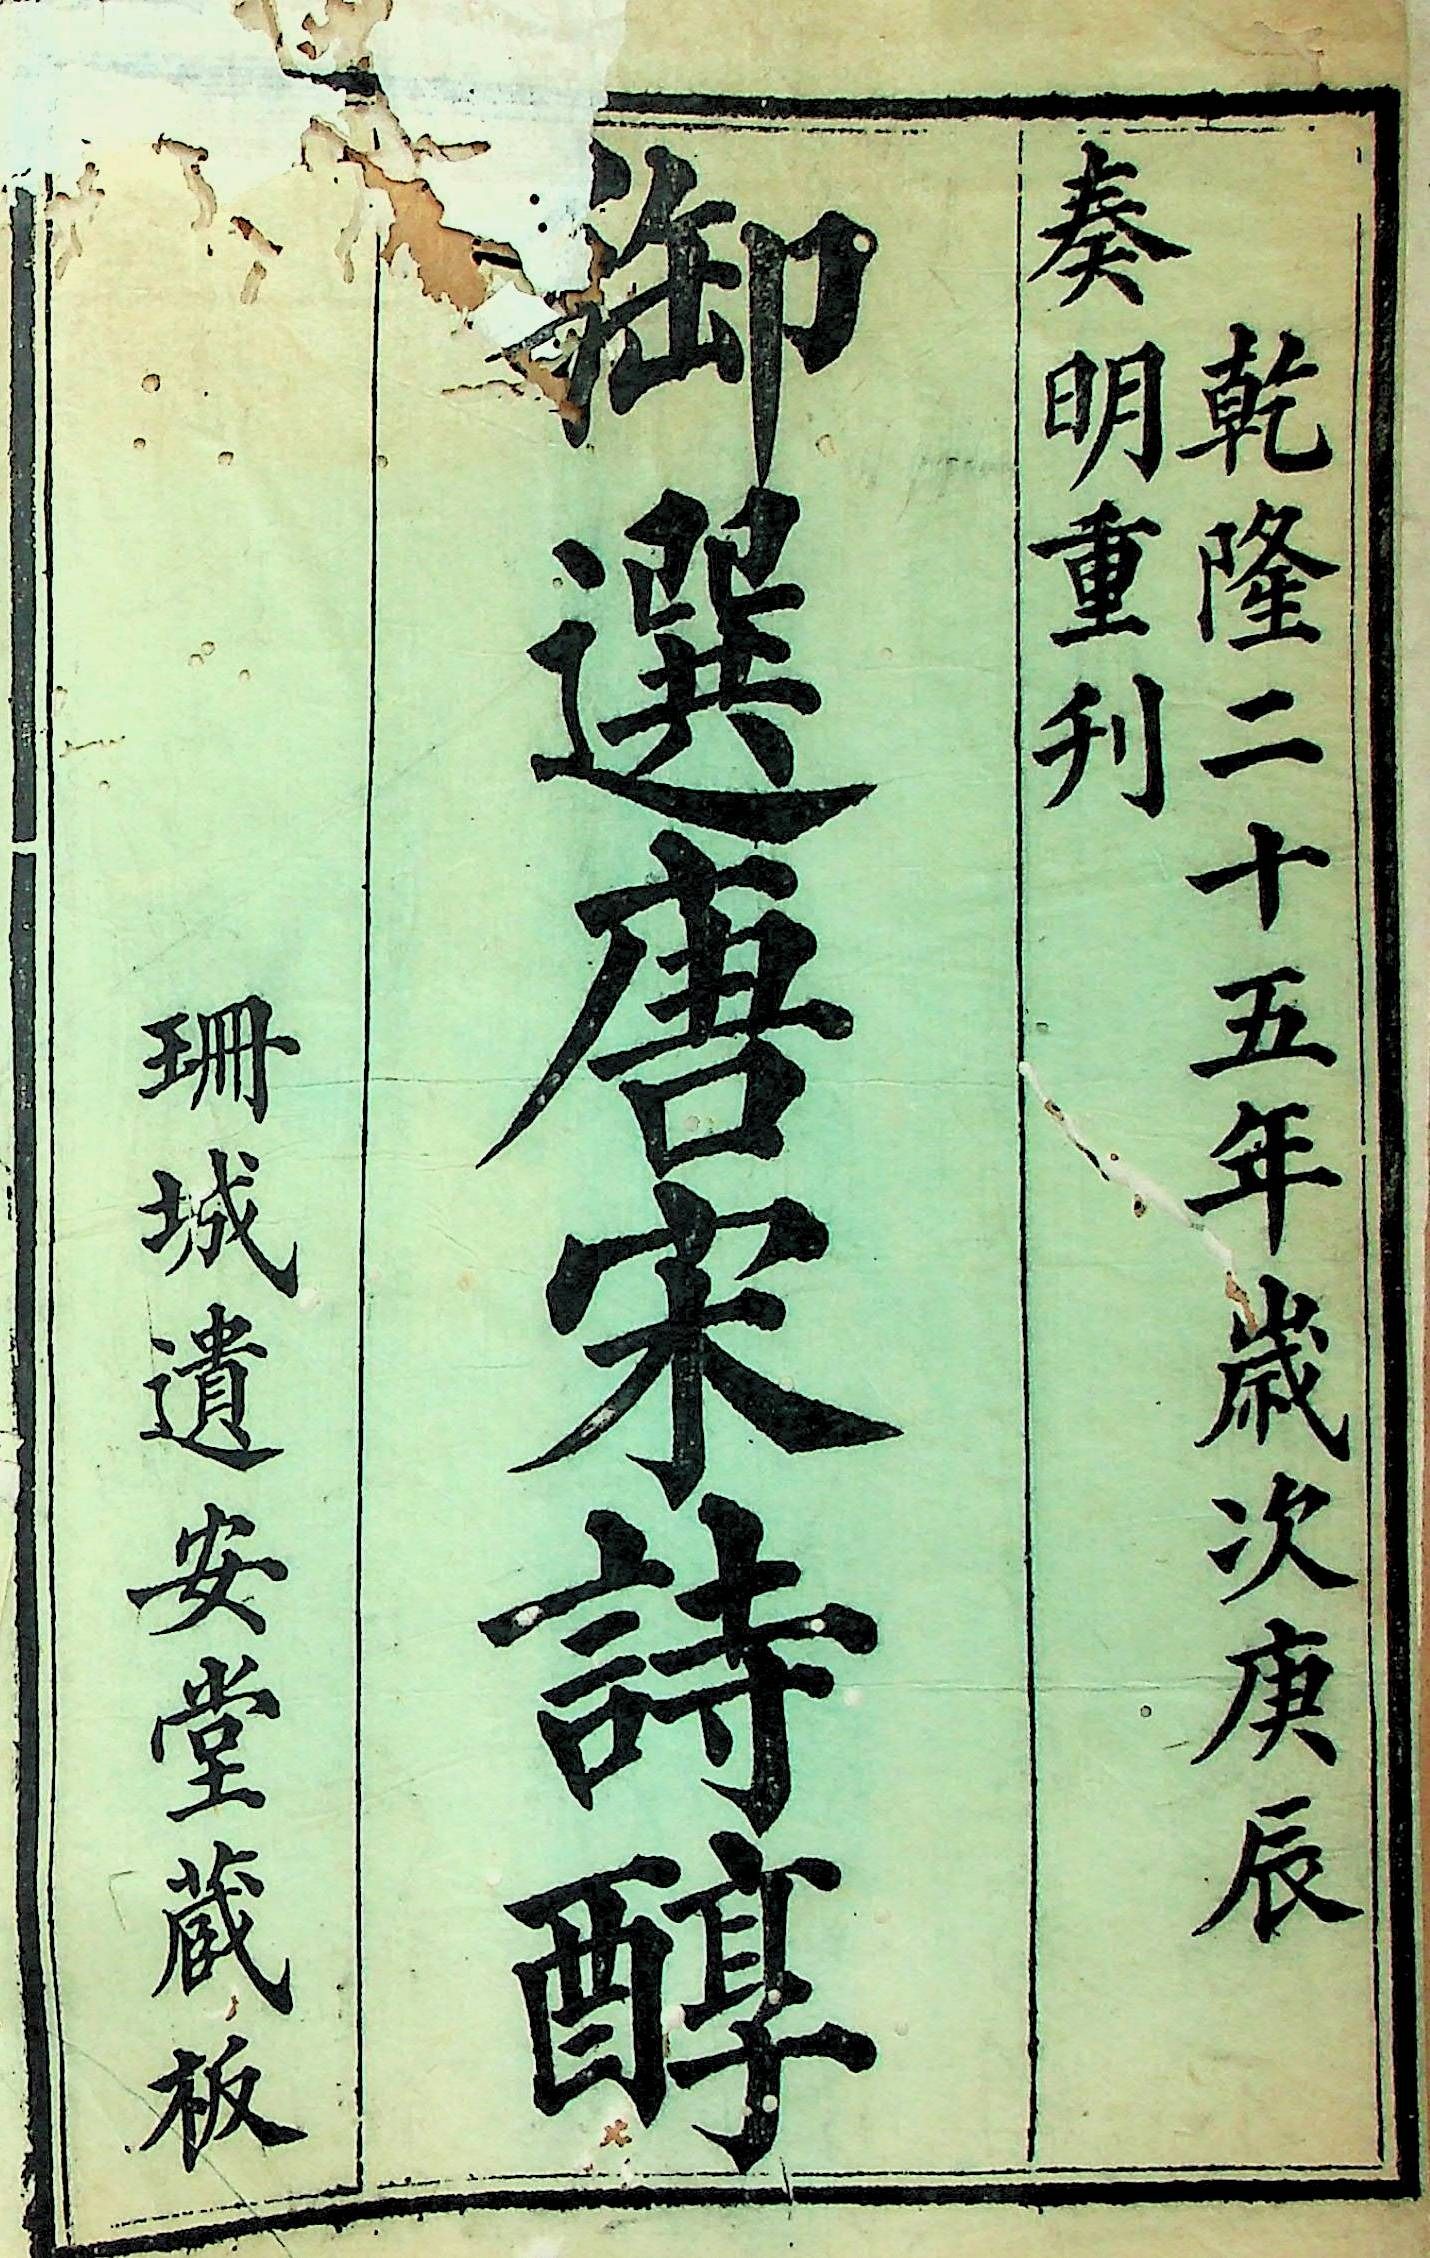 乾隆二十五年歲次庚辰
奏明重刊
御選唐宋詩醇
珊城遺安堂藏板